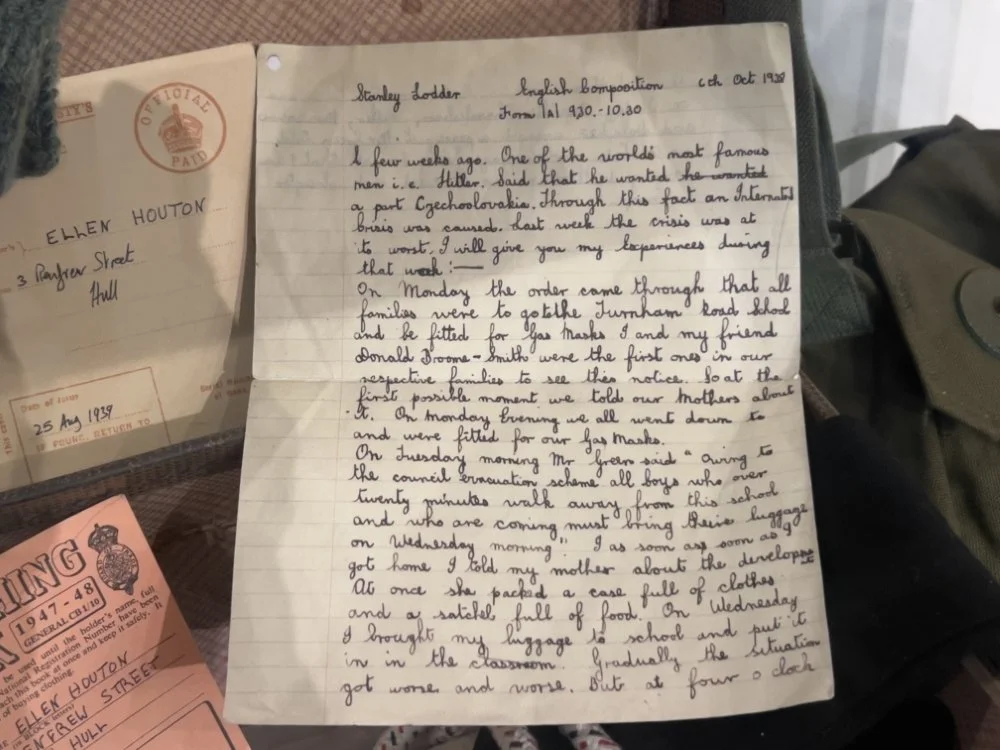 OFFICIAL
PAID
ELLEN HOUTON
3 Renfrew Street
Hull
Date of Issue
25 Aug 1939
IF FOUND, RETURN TO
HING
1947-48
GENERAL CB 1/10
used until the holder's name, full
National Registration Number have been
ach this book at once and keep it safely. It
of buying clothing.
ELLEN HOUTON
ENFREW STREET
HULL
Stanley Lodder English Composition 6th Oct 1938
Form 1A1 930.-10.30
A few weeks ago. One of the world's most famous
men i.e. Hitler. Said that he wanted he wanted
a part Czechoolovakia. Through this fact an International
Crisis was caused. Last week the crisis was at
to worst. I will give you my Experiences during
that week :—
On Monday the order came through that all
families were to gotothe Furnham Road School
and be fitted for Gas Masks I and my friend
Donald Broome-Smith were the first ones in our
respective families to see this notice. So at the
first possible moment we told our Mothers about
it. On Monday Evening we all went down to
and were fitted for our Gas Masks.
On Tuesday morning Mr Green said "owing to
the council evacuation scheme all boys who over
twenty minutes walk away from this school
and who are coming must bring their luggage
on Wednesday morning" I as soon as soon as I
got home I told my mother about the
At once she packed a case full of clothes
and a satchel full of food. On Wednesday
I brought my luggage to school and put it
in in the classroom. Gradually the Situation
got worse and worse. But at four o clock